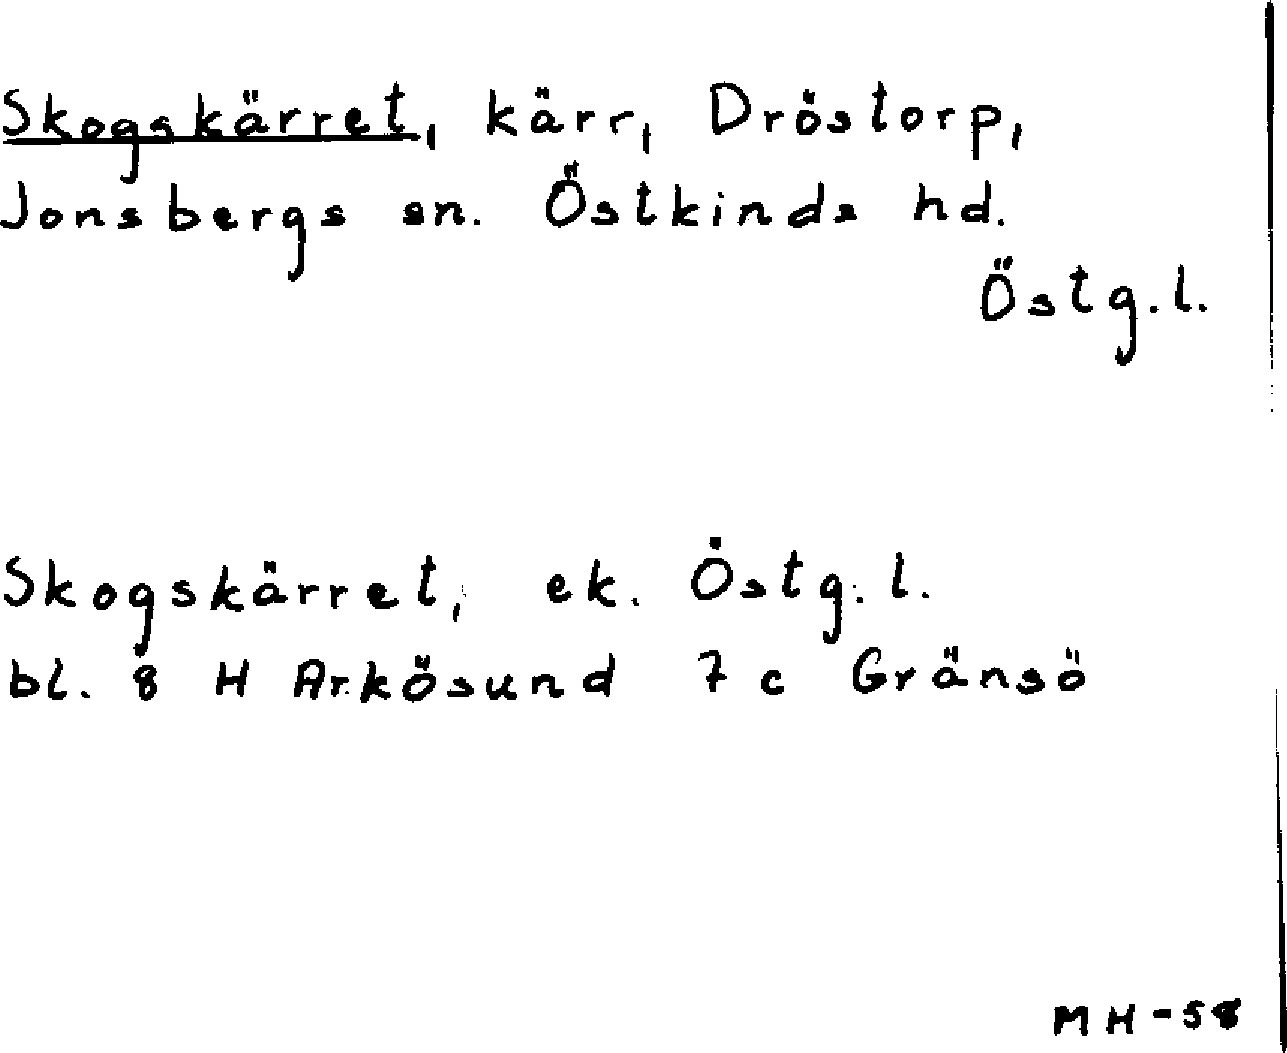 Skogskärret, kärr, Dröstorp,
Jonsbergs sn. Östkinds hd.
Östg.l.
Skogskärret, ek. Östg. l.
bl. 8 H Arkösund 7 c Gränsö
MH-58